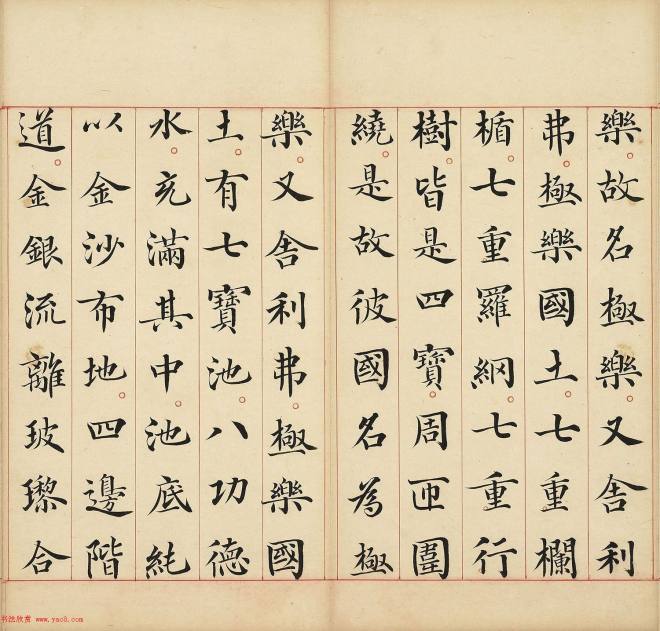 樂故名極樂又舍利
弗極樂國土七重欄
楯七重羅網七重行
樹皆是四寶周匝圍
繞是故彼國名為極
樂又舍利弗極樂國
土有七寶池八功德
水充滿其中池底純
以金沙布地四邊階
道金銀流離玻瓈合
书法欣赏 www.yac8.com